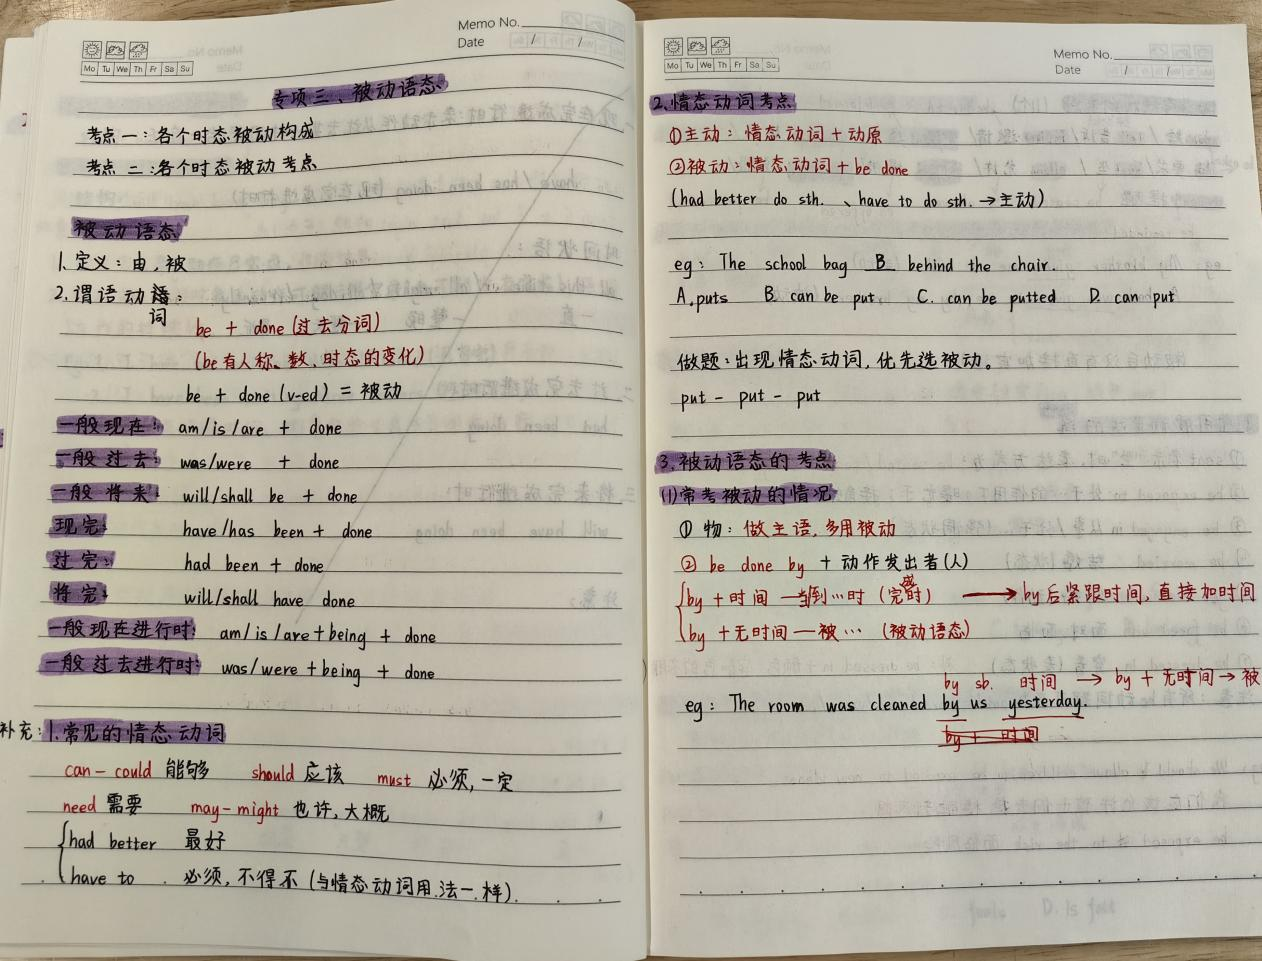 Memo No.
Date / /
Mo Tu We Th Fr Sa Su
专项三、被动语态
考点一：各个时态被动构成
考点二：各个时态被动考点
被动语态
1. 定义：由，被
2. 谓语动词：
be + done (过去分词)
(be有人称、数、时态的变化)
be + done (v-ed) = 被动
一般现在： am/is/are + done
一般过去： was/were + done
一般将来： will/shall be + done
现完： have/has been + done
过完： had been + done
将完： will/shall have done
一般现在进行时： am/is/are+being + done
一般过去进行时： was/were+being + done
补充：1.常见的情态动词
can-could 能够 should 应该 must 必须,一定
need 需要 may-might 也许,大概
had better 最好
have to 必须，不得不 (与情态动词用法一样)
Memo No.
Date / /
Mo Tu We Th Fr Sa Su
2.情态动词考点
①主动：情态动词+动原
②被动：情态动词+ be done
(had better do sth. 、have to do sth. →主动)
eg: The school bag B behind the chair.
A. puts B. can be put C. can be putted D. can put
做题：出现情态动词，优先选被动。
put - put - put
3.被动语态的考点
(1)常考被动的情况
① 物：做主语，多用被动
② be done by + 动作发出者(人)
by +时间 —当到…时 (完成时) → by后紧跟时间,直接加时间
by +无时间—被… (被动语态)
by sb. 时间 → by + 无时间→被
eg: The room was cleaned by us yesterday.
by + 时间